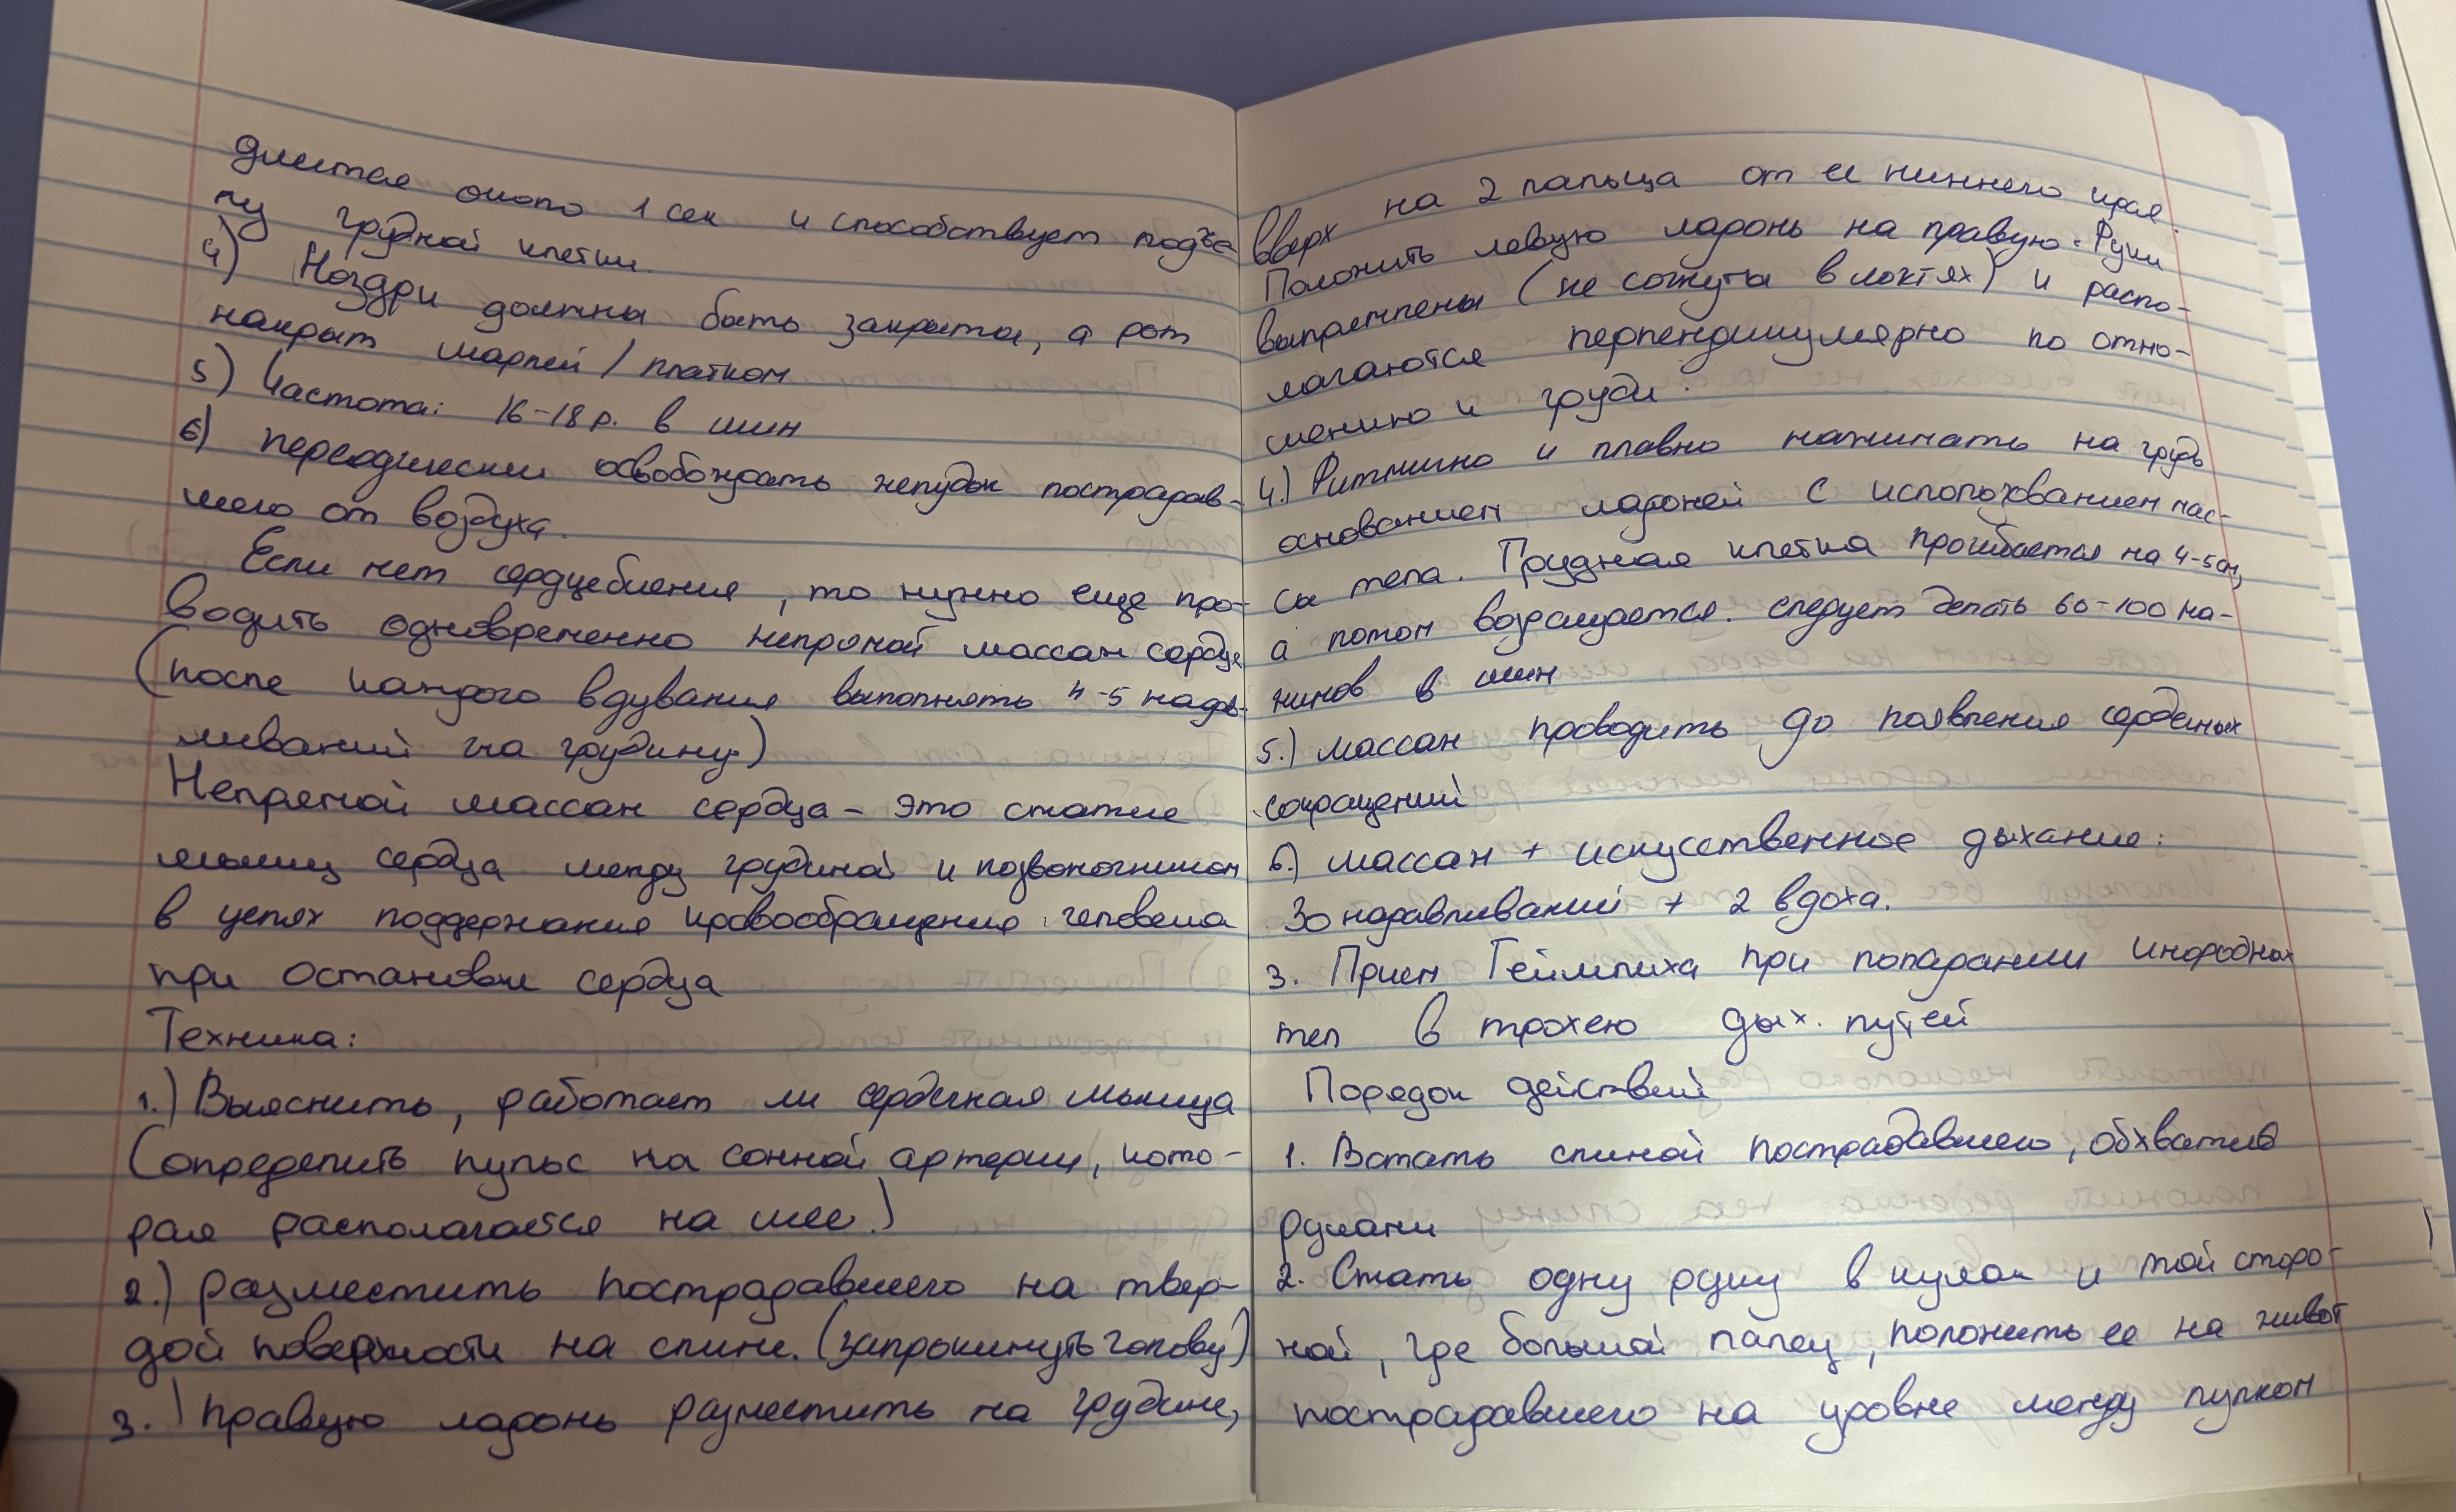 длится около 1 сек и способствует подъе
му грудной клетки.
4) Ноздри должны быть закрыты, а рот
накрыт марлей / платком
5) Частота: 16-18 р. в мин
6) переодически освобождать желудок пострадав-
шего от воздуха.
Если нет сердцебиения, то нужно еще про-
водить одновременно непрямой массаж сердца
(после каждого вдувания выполнять 4-5 надав-
ливаний на грудину)
Непрямой массаж сердца - это сжатие
мышц сердца между грудиной и позвоночником
в целях поддержания кровообращения человека
при остановке сердца
Техника:
1.) Выяснить, работает ли сердечная мышца
(определить пульс на сонной артерии, кото-
рая располагается на шее.)
2.) разместить пострадавшего на твер-
дой поверхности на спине. (запрокинуть голову)
3.) правую ладонь разместить на грудине,
вверх на 2 пальца от ее нижнего края.
Положить левую ладонь на правую. Руки
выпрямлены (не согнуты в локтях) и распо-
лагаются перпендикулярно по отно-
шению к груди.
4.) Ритмично и плавно нажимать на грудь
основанием ладоней с использованием мас-
сы тела. Грудная клетка прогибается на 4-5 см,
а потом возращается. следует делать 60-100 на-
жимов в мин
5.) массаж проводить до появления сердечных
сокращений
6.) массаж + искусственное дыхание:
30 надавливаний + 2 вдоха.
3. Прием Геймлиха при попадании инородных
тел в трохею дых. путей
Порядок действий
1. Встать спиной пострадавшего, обхватив
руками
2. Сжать одну руку в кулак и той сторо-
ной, где большой палец, положить ее на живот
пострадавшего на уровне между пупком